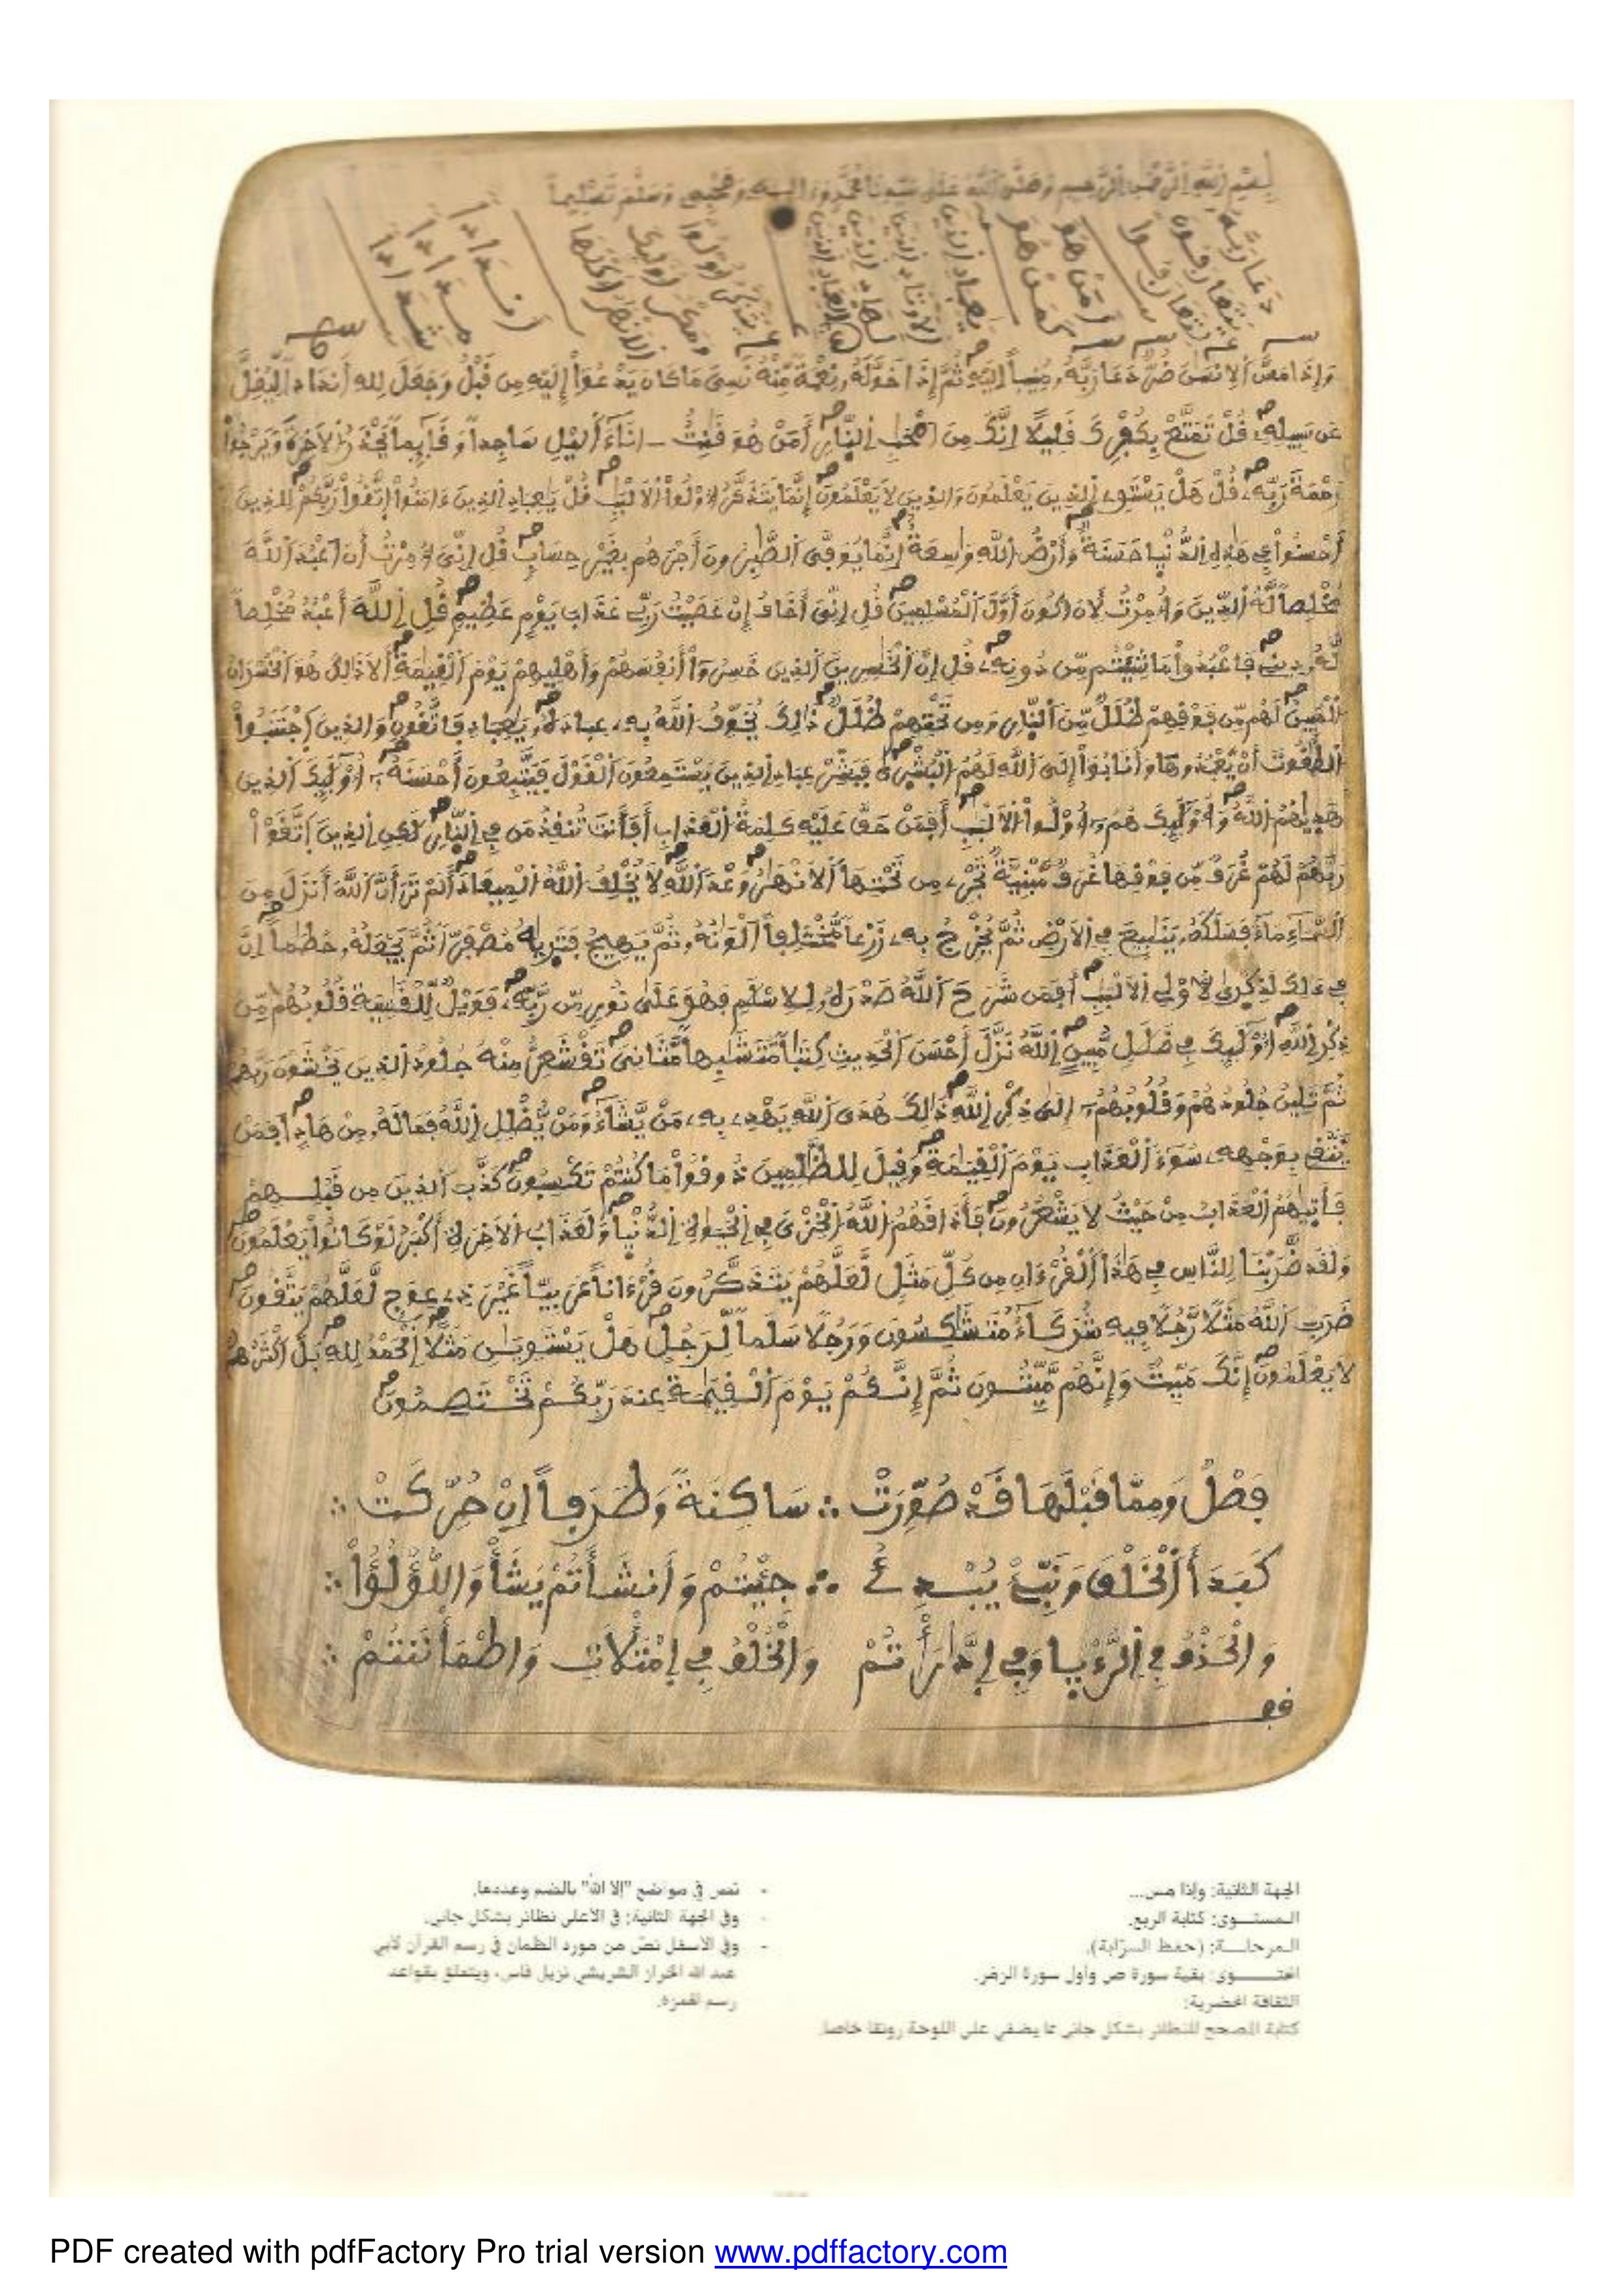 بِسْمِ اللَّهِ الرَّحْمَٰنِ الرَّحِيمِ وَصَلَّى اللَّهُ عَلَى سَيِّدِنَا مُحَمَّدٍ وَءَالِهِ وَصَحْبِهِ وَسَلَّمَ تَسْلِيماً
وَإِذَا مَسَّ اَلِانسَٰنَ ضُرٌّ دَعَا رَبَّهُۥ مُنِيباً اِلَيْهِ ثُمَّ إِذَا خَوَّلَهُۥ نِعْمَةً مِّنْهُ نَسِىَ مَا كَانَ يَدْعُوٓاْ إِلَيْهِ مِن قَبْلُ وَجَعَلَ لِلهِ أَندَاداً لِّيُضِلَّ
عَن سَبِيلِهِۦ قُلْ تَمَتَّعْ بِكُفْرِكَ قَلِيلًا اِنَّكَ مِنَ اَصْحَٰبِ اِلنّ۪ارِ أَمَنْ هُوَ قَٰنِتٌ ـ اٰنَآءَ اَلَيْلِ سَاجِداً وَقَآئِماً يَحْذَرُ اُلَاخِرَةَ وَيَرْجُواْ
رَحْمَةَ رَبِّهِۦ قُلْ هَلْ يَسْتَوِى اِلذِينَ يَعْلَمُونَ وَالذِينَ لَا يَعْلَمُونَ إِنَّمَا يَتَذَكَّرُ أُوْلُواْ اُلَالْبَٰبِ قُلْ يَٰعِبَادِ اِلذِينَ ءَامَنُواْ اُتَّقُواْ رَبَّكُمْ لِلذِينَ
أَحْسَنُواْ فِى هَٰذِهِ اِلدُّنْيَا حَسَنَةٌ وَأَرْضُ اُللَّهِ وَٰسِعَةٌ اِنَّمَا يُوَفَّى اَلصَّٰبِرُونَ أَجْرَهُم بِغَيْرِ حِسَابٍ قُلِ اِنِّىَ أُمِرْتُ أَنَ اَعْبُدَ اَللَّهَ
مُخْلِصاً لَّهُ اُلدِّينَ وَأُمِرْتُ لِأَنَ اَكُونَ أَوَّلَ اَلْمُسْلِمِينَ قُلِ اِنِّىَ أَخَافُ إِنْ عَصَيْتُ رَبِّى عَذَابَ يَوْمٍ عَظِيمٍ قُلِ اِللَّهَ أَعْبُدُ مُخْلِصاً
لَّهُۥ دِينِى فَاعْبُدُواْ مَا شِئْتُم مِّن دُونِهِۦ قُلِ اِنَّ اَلْخَٰسِرِينَ اَلذِينَ خَسِرُوٓاْ أَنفُسَهُمْ وَأَهْلِيهِمْ يَوْمَ اَلْقِيَٰمَةِ أَلَا ذَٰلِكَ هُوَ اَلْخُسْرَانُ
اُلْمُبِينُ لَهُم مِّن فَوْقِهِمْ ظُلَلٌ مِّنَ اَلنّ۪ارِ وَمِن تَحْتِهِمْ ظُلَلٌ ذَٰلِكَ يُخَوِّفُ اُللَّهُ بِهِۦ عِبَادَهُۥ يَٰعِبَادِ فَاتَّقُونِ وَالذِينَ اَجْتَنَبُواْ
اُلطَّٰغُوتَ أَنْ يَّعْبُدُوهَا وَأَنَابُوٓاْ إِلَى اَللَّهِ لَهُمُ اُلْبُشْرَىٰ فَبَشِّرْ عِبَادِ اِلذِينَ يَسْتَمِعُونَ اَلْقَوْلَ فَيَتَّبِعُونَ أَحْسَنَهُۥٓ أُوْلَٰٓئِكَ اَلذِينَ
هَدَيٰهُمُ اُللَّهُ وَأُوْلَٰٓئِكَ هُمُۥٓ أُوْلُواْ اُلَالْبَٰبِ أَفَمَنْ حَقَّ عَلَيْهِ كَلِمَةُ اُلْعَذَابِ أَفَأَنتَ تُنقِذُ مَن فِى اِلنّ۪ارِ لَٰكِنِ اِلذِينَ اَتَّقَوْاْ
رَبَّهُمْ لَهُمْ غُرَفٌ مِّن فَوْقِهَا غُرَفٌ مَّبْنِيَّةٌ تَجْرِى مِن تَحْتِهَا اَلَانْهَٰرُ وَعْدَ اَللَّهِ لَا يُخْلِفُ اُللَّهُ اُلْمِيعَادَ أَلَمْ تَرَ أَنَّ اَللَّهَ أَنزَلَ مِنَ
اَلسَّمَآءِ مَآءً فَسَلَكَهُۥ يَنَٰبِيعَ فِى اِلَارْضِ ثُمَّ يُخْرِجُ بِهِۦ زَرْعاً مُّخْتَلِفاً اَلْوَٰنُهُۥ ثُمَّ يَهِيجُ فَتَرَيٰهُ مُصْفَرّاً ثُمَّ يَجْعَلُهُۥ حُطَٰماً اِنَّ
فِى ذَٰلِكَ لَذِكْرَىٰ لِأُوْلِى اِلَالْبَٰبِ أَفَمَن شَرَحَ اَللَّهُ صَدْرَهُۥ لِلِاسْلَٰمِ فَهُوَ عَلَىٰ نُورٍ مِّن رَّبِّهِۦ فَوَيْلٌ لِّلْقَٰسِيَةِ قُلُوبُهُم مِّن
ذِكْرِ اِللَّهِ أُوْلَٰٓئِكَ فِى ضَلَٰلٍ مُّبِينٍ اِللَّهُ نَزَّلَ أَحْسَنَ اَلْحَدِيثِ كِتَٰباً مُّتَشَٰبِهاً مَّثَانِىَ تَقْشَعِرُّ مِنْهُ جُلُودُ اُلذِينَ يَخْشَوْنَ رَبَّهُمْ
ثُمَّ تَلِينُ جُلُودُهُمْ وَقُلُوبُهُمُۥٓ إِلَىٰ ذِكْرِ اِللَّهِ ذَٰلِكَ هُدَى اَللَّهِ يَهْدِى بِهِۦ مَنْ يَّشَآءُ وَمَنْ يُّضْلِلِ اِللَّهُ فَمَا لَهُۥ مِنْ هَادٍ اَفَمَنْ
يَّتَّقِى بِوَجْهِهِۦ سُوٓءَ اَلْعَذَابِ يَوْمَ اَلْقِيَٰمَةِ وَقِيلَ لِلظَّٰلِمِينَ ذُوقُواْ مَا كُنتُمْ تَكْسِبُونَ كَذَّبَ اَلذِينَ مِن قَبْلِهِمْ
فَأَتَيٰهُمُ اُلْعَذَابُ مِنْ حَيْثُ لَا يَشْعُرُونَ فَأَذَاقَهُمُ اُللَّهُ اُلْخِزْىَ فِى اِلْحَيَوٰةِ اِلدُّنْيَا وَلَعَذَابُ اُلَاخِرَةِ أَكْبَرُ لَوْ كَانُواْ يَعْلَمُونَ
وَلَقَد ضَّرَبْنَا لِلنَّاسِ فِى هَٰذَا اَلْقُرْءَانِ مِن كُلِّ مَثَلٍ لَّعَلَّهُمْ يَتَذَكَّرُونَ قُرْءَاناً عَرَبِيّاً غَيْرَ ذِى عِوَجٍ لَّعَلَّهُمْ يَتَّقُونَ
ضَرَبَ اَللَّهُ مَثَلًا رَّجُلًا فِيهِ شُرَكَآءُ مُتَشَٰكِسُونَ وَرَجُلًا سَلَماً لِّرَجُلٍ هَلْ يَسْتَوِيَٰنِ مَثَلًا اِلْحَمْدُ لِلهِ بَلَ اَكْثَرُهُمْ
لَا يَعْلَمُونَ إِنَّكَ مَيِّتٌ وَإِنَّهُم مَّيِّتُونَ ثُمَّ إِنَّكُمْ يَوْمَ اَلْقِيَٰمَةِ عِندَ رَبِّكُمْ تَخْتَصِمُونَ
فَصْلٌ وَمِمَّا قَبْلَهَا قَدْ صُوِّرَتْ ∴ سَاكِنَةً وَطَرَفاً إِنْ حُرِّكَتْ ∴
كَبَدَأَ اَلْخَلْقَ وَنَبِّئْ يُبْدِئُ ∴ جِئْتُمْ وَأَنشَأتُمْ يَشَأْ وَاللُّؤْلُؤُاْ ∴
وَالْحَذْفُ فِي اِلرُّءْيَا وَفِي اِدَّٰرَأْتُمْ وَالْخُلْفُ فِي اِمْتَلَأْتِ وَاطْمَأْنَنتُمْ ∴
قف
الجهة الثانية: وإذا مس...
المستوى: كتابة الربع.
المرحلة: (حفظ السرّابة).
المحتوى: بقية سورة ص وأول سورة الزمر.
الثقافة المحضرية:
كتابة المصحح للنظائر بشكل جانبي مما يضفي على اللوحة رونقا خاصا.
- نص في مواضع "إلا الله" بالضم وعددها.
- وفي الجهة الثانية: في الأعلى نظائر بشكل جانبي.
- وفي الأسفل نصّ من مورد الظمآن في رسم القرآن لأبي
عبد الله الخراز الشريشي نزيل فاس، ويتعلق بقواعد
رسم الهمزة.
PDF created with pdfFactory Pro trial version www.pdffactory.com